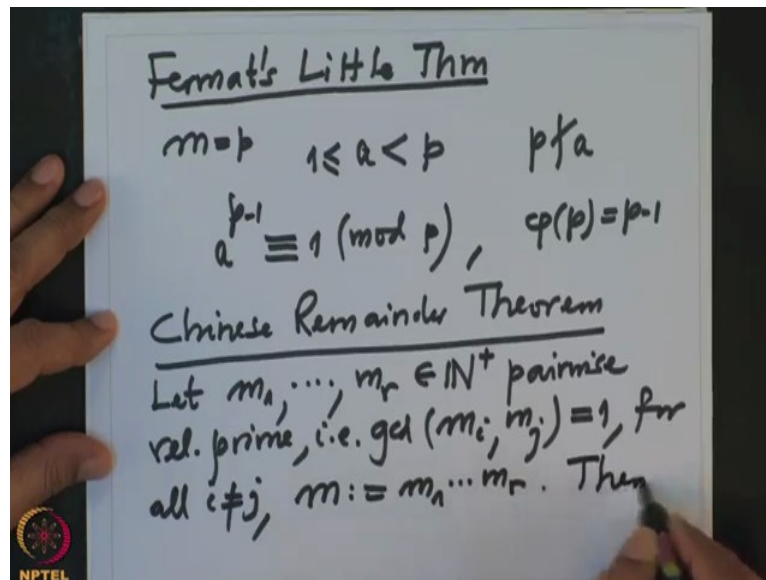 Fermat's Little Thm
m=p 1≤a<p p∤a
a^{p-1} ≡ 1 (mod p), φ(p)=p-1
Chinese Remainder Theorem
Let m₁,⋯,mᵣ ∈ ℕ⁺ pairwise
rel. prime, i.e. gcd (mᵢ, mⱼ)=1, for
all i≠j, m := m₁⋯mᵣ. Then
NPTEL